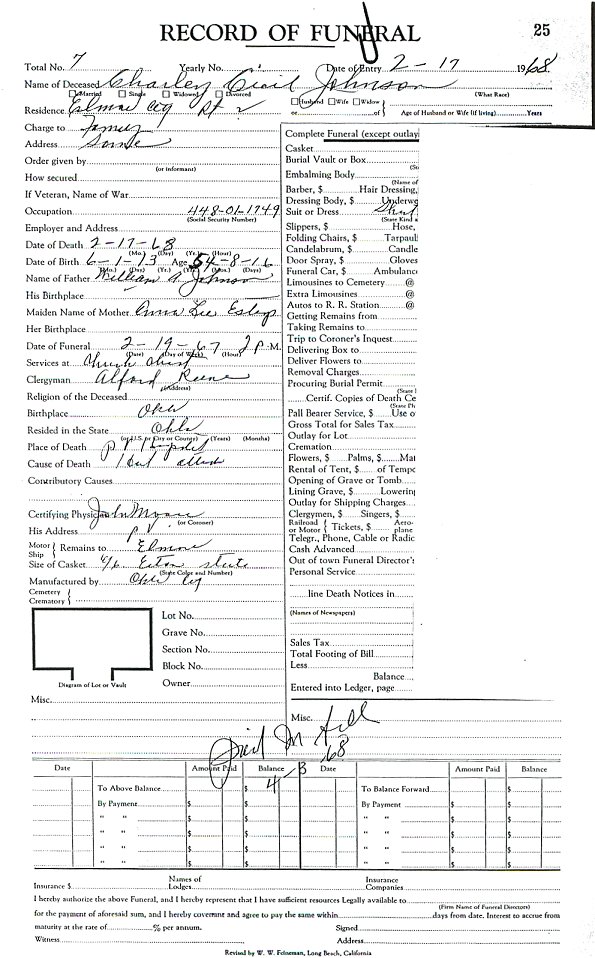 RECORD OF FUNERAL
25
Total No. 7 Yearly No. Date of Entry 2 - 17 1968
Name of Deceased Charley Johnson
Married Single Widowed Divorced (What Race)
Residence Elmore City Rt 2
Husband Wife Widow
or of Age of Husband or Wife (if living) Years
Charge to Family
Address Same
Order given by
(or informant)
How secured
If Veteran, Name of War
Occupation 448-01-1749
(Social Security Number)
Employer and Address
Date of Death 2-17-68
(Mo.) (Day) (Yr.) (Hour)
Date of Birth 6-1-13 Age 54-8-16
(Mo.) (Day) (Yr.) (Yrs.) (Mos.) (Days)
Name of Father William A. Johnson
His Birthplace
Maiden Name of Mother Anna Lee
Her Birthplace
Date of Funeral 2-19-67 2 P. M.
(Date) (Day of Week) (Hour)
Services at Church Christ
Clergyman Alford
(Address)
Religion of the Deceased
Birthplace Okla
Resided in the State Okla
(or U.S. or City or County) (Years) (Months)
Place of Death P. V. Hospital
Cause of Death
Contributory Causes
Certifying Physician John
(or Coroner)
His Address P V
Motor Ship Remains to Elmore
Size of Casket 6/6 state
(State Color and Number)
Manufactured by Okla
Cemetery
Crematory
Lot No.
Grave No.
Section No.
Block No.
Owner
Diagram of Lot or Vault
Misc.
Complete Funeral (except outlay
Casket
Burial Vault or Box
(St
Embalming Body
(Name of
Barber, $ Hair Dressing,
Dressing Body, $ Underwe
Suit or Dress
(State Kind a
Slippers, $ Hose,
Folding Chairs, $ Tarpaul
Candelabrum, $ Candle
Door Spray, $ Gloves
Funeral Car, $ Ambulanc
Limousines to Cemetery @
Extra Limousines @
Autos to R. R. Station @
Getting Remains from
Taking Remains to
Trip to Coroner's Inquest
Delivering Box to
Deliver Flowers to
Removal Charges
Procuring Burial Permit
(State
Certif. Copies of Death Ce
(State Ph
Pall Bearer Service, $ Use o
Gross Total for Sales Tax
Outlay for Lot
Cremation
Flowers, $ Palms, $ Mat
Rental of Tent, $ of Tempo
Opening of Grave or Tomb
Lining Grave, $ Lowering
Outlay for Shipping Charges
Clergymen, $ Singers, $
Railroad or Motor Tickets, $ Aero-plane
Telegr., Phone, Cable or Radio
Cash Advanced
Out of town Funeral Director's
Personal Service
line Death Notices in
(Names of Newspapers)
Sales Tax
Total Footing of Bill
Less
Balance
Entered into Ledger, page
Misc.
Paid in full
4 - 3 68
Date Amount Paid Balance Date Amount Paid Balance
To Above Balance $ To Balance Forward $
By Payment $ $ By Payment $ $
" " $ $ " " $ $
" " $ $ " " $ $
" " $ $ " " $ $
" " $ $ " " $ $
Insurance $ Names of Lodges Insurance Companies
I hereby authorize the above Funeral, and I hereby represent that I have sufficient resources Legally available to
(Firm Name of Funeral Directors)
for the payment of aforesaid sum, and I hereby covenant and agree to pay the same within days from date. Interest to accrue from
maturity at the rate of % per annum. Signed
Witness Address
Revised by W. W. Feineman, Long Beach, California